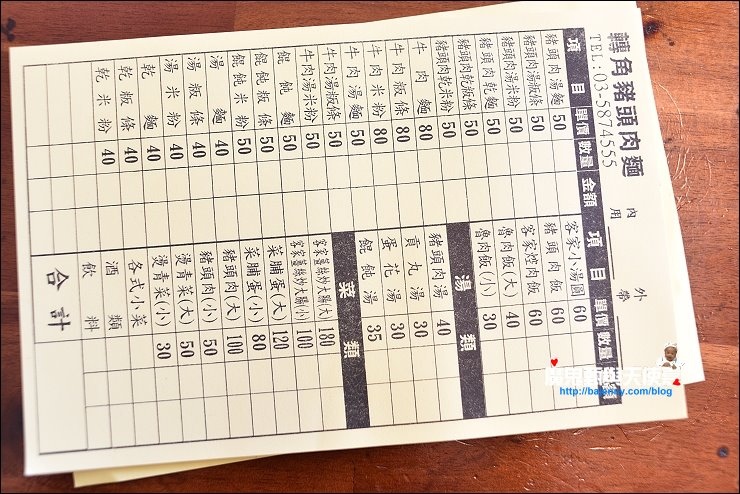 轉角豬頭肉麵
TEL:03-5874555
內用
外帶
項目 單價 數量 金額
豬頭肉湯麵 50
豬頭肉湯粄條 50
豬頭肉湯米粉 50
豬頭肉乾麵 50
豬頭肉乾粄條 50
豬頭肉乾米粉 50
牛肉麵 80
牛肉粄條 80
牛肉米粉 80
牛肉湯麵 50
牛肉湯粄條 50
牛肉湯米粉 50
餛飩麵 50
餛飩粄條 50
餛飩米粉 50
湯麵 40
湯粄條 40
湯米粉 40
乾麵 40
乾粄條 40
乾米粉 40
項目 單價 數量
客家小湯圓 60
豬頭肉飯 60
客家焢肉飯 60
魯肉飯(大) 40
魯肉飯(小) 30
湯類
豬頭肉湯 40
貢丸湯 30
蛋花湯 30
餛飩湯 35
菜類
客家薑絲炒大腸(大) 180
客家薑絲炒大腸(小) 100
菜脯蛋(大) 120
菜脯蛋(小) 80
豬頭肉(大) 100
豬頭肉(小) 50
燙青菜(大) 50
燙青菜(小) 30
各式小菜
酒類
飲料
合計
http://bajenny.com/blog